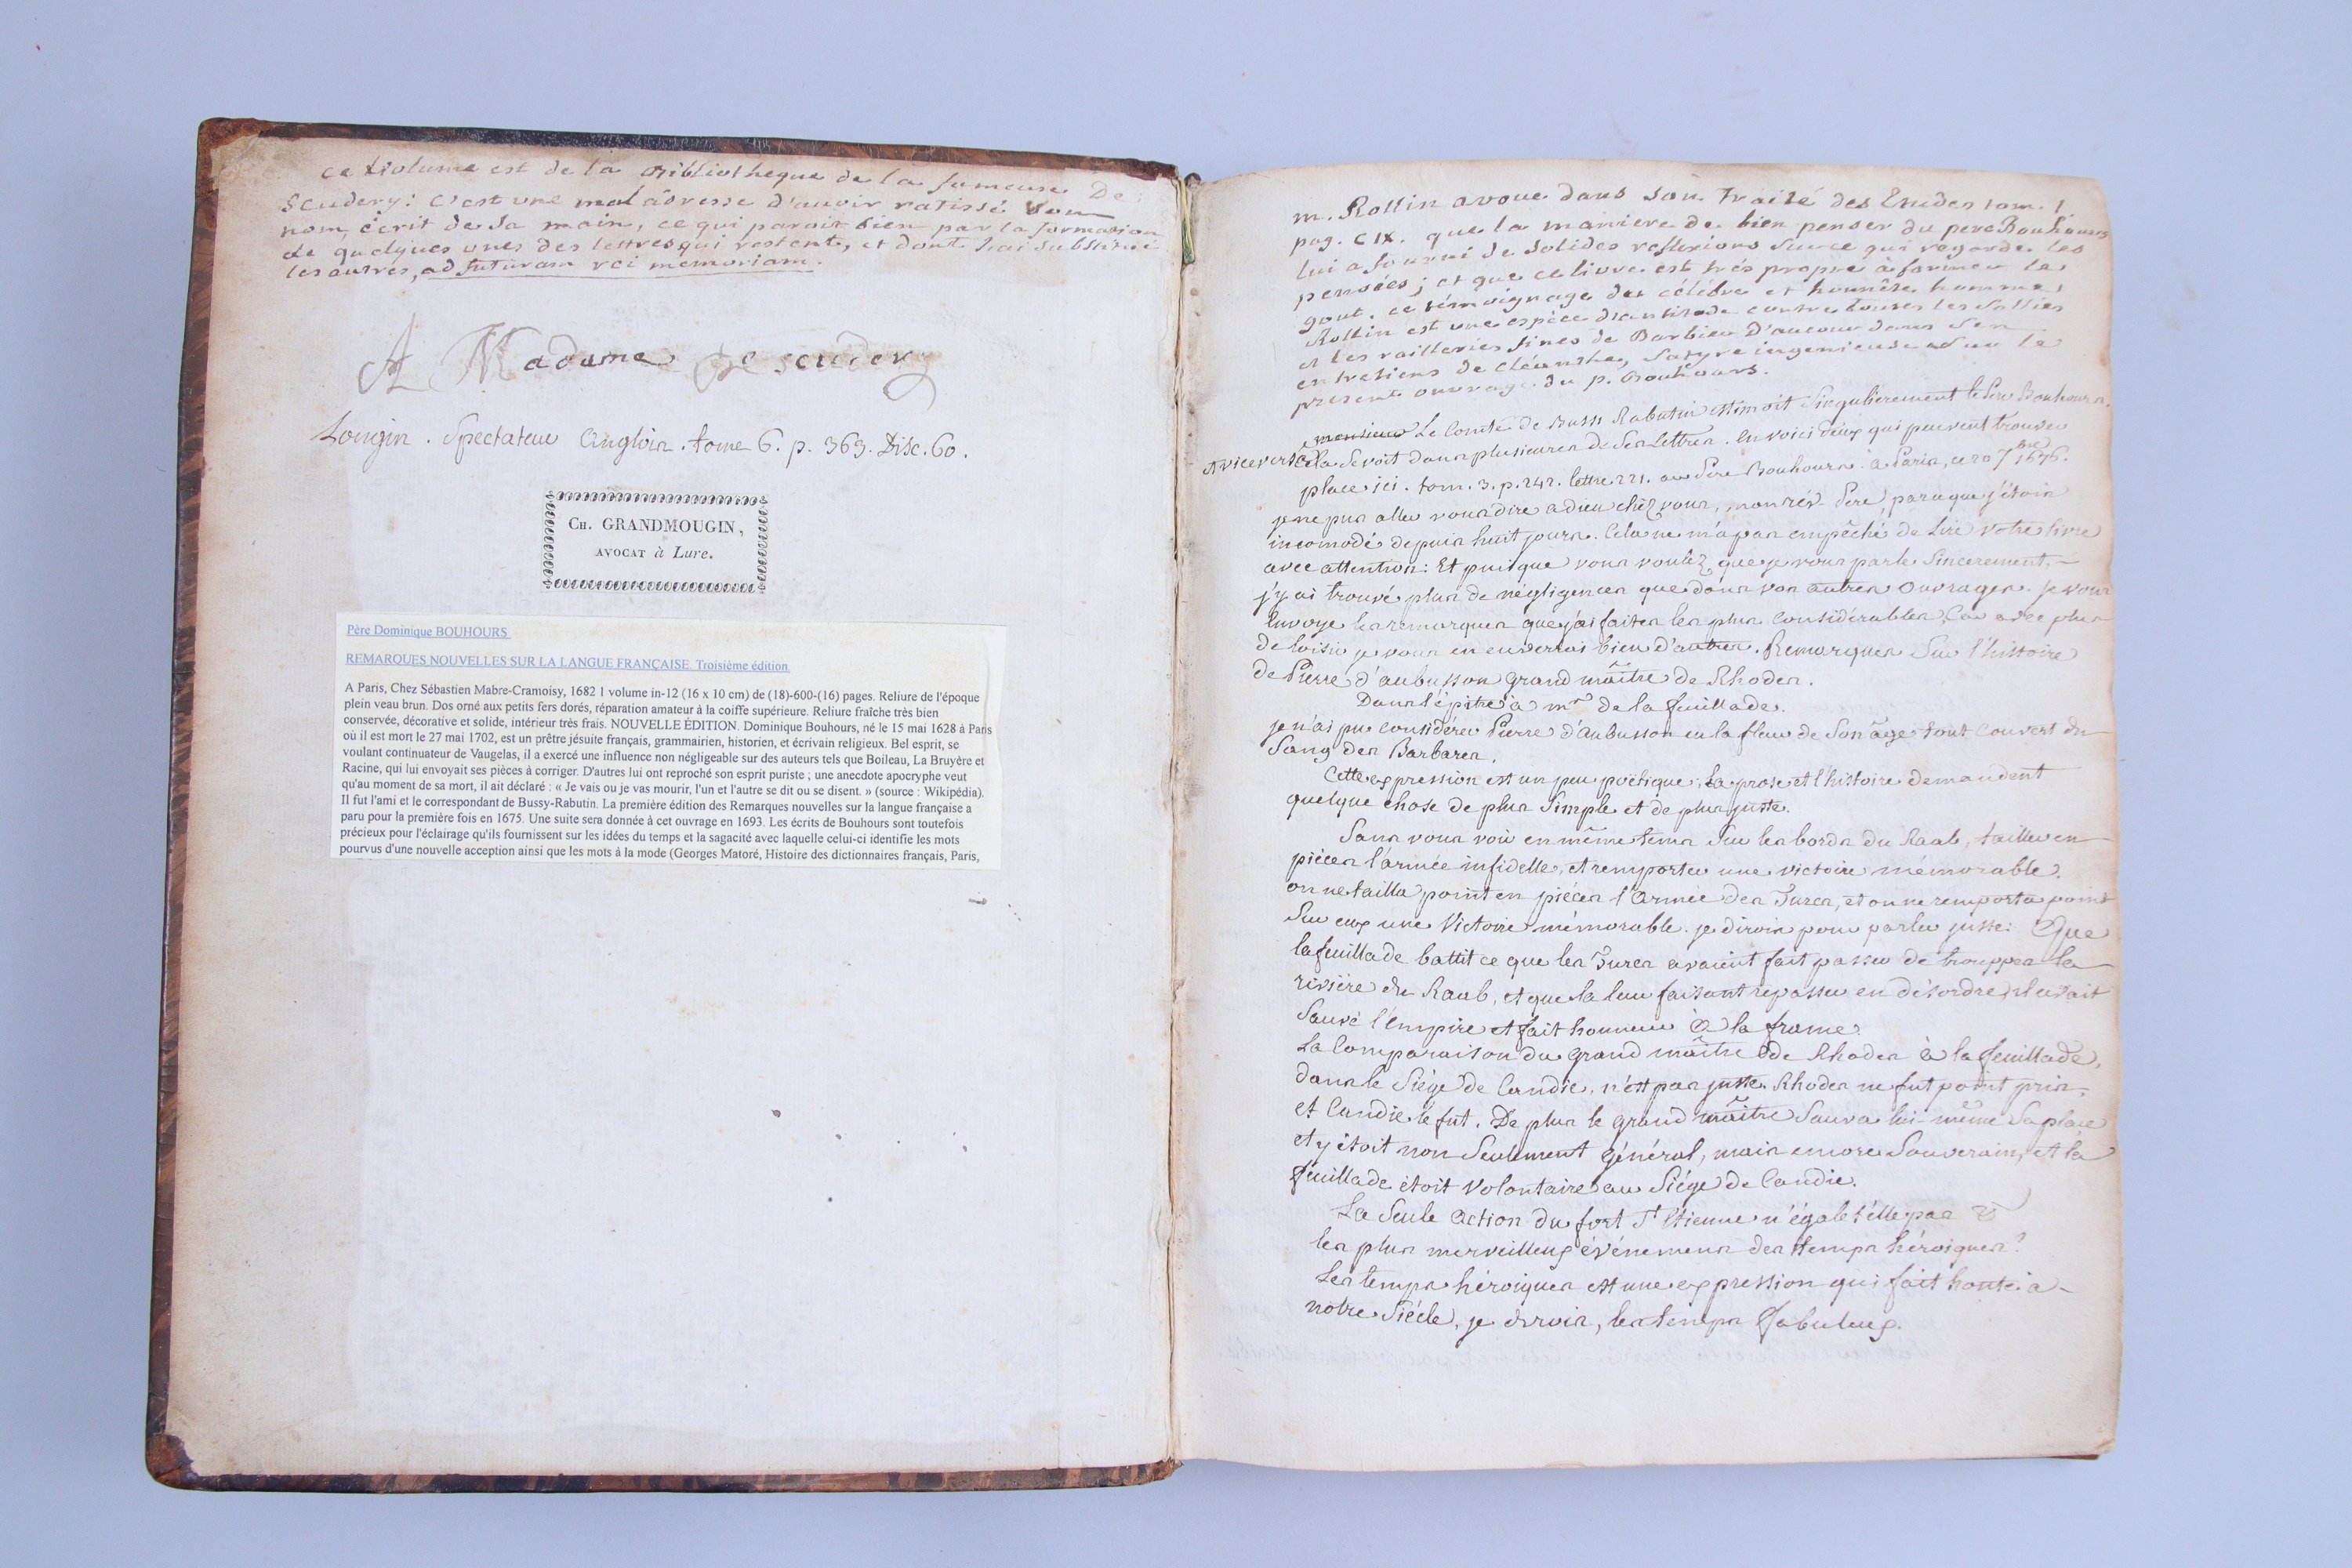 ce volume est de la Bibliotheque de la fameuse De
Scudery: c'est une mal adresse d'avoir ratissé son
nom, écrit de sa main, ce qui paroit bien par la formation
de quelques unes des lettres qui restent, et dont j'ai substitué
les autres, ad futuram rei memoriam.
A Madame de scudery
Longin. Spectateur Anglois. tome 6. p. 363. Disc. 60.
CH. GRANDMOUGIN,
AVOCAT à Lure.
Père Dominique BOUHOURS
REMARQUES NOUVELLES SUR LA LANGUE FRANÇAISE. Troisième édition
A Paris, Chez Sébastien Mabre-Cramoisy, 1682 1 volume in-12 (16 x 10 cm) de (18)-600-(16) pages. Reliure de l'époque
plein veau brun. Dos orné aux petits fers dorés, réparation amateur à la coiffe supérieure. Reliure fraîche très bien
conservée, décorative et solide, intérieur très frais. NOUVELLE ÉDITION. Dominique Bouhours, né le 15 mai 1628 à Paris
où il est mort le 27 mai 1702, est un prêtre jésuite français, grammairien, historien, et écrivain religieux. Bel esprit, se
voulant continuateur de Vaugelas, il a exercé une influence non négligeable sur des auteurs tels que Boileau, La Bruyère et
Racine, qui lui envoyait ses pièces à corriger. D'autres lui ont reproché son esprit puriste ; une anecdote apocryphe veut
qu'au moment de sa mort, il ait déclaré : « Je vais ou je vas mourir, l'un et l'autre se dit ou se disent. » (source : Wikipédia).
Il fut l'ami et le correspondant de Bussy-Rabutin. La première édition des Remarques nouvelles sur la langue française a
paru pour la première fois en 1675. Une suite sera donnée à cet ouvrage en 1693. Les écrits de Bouhours sont toutefois
précieux pour l'éclairage qu'ils fournissent sur les idées du temps et la sagacité avec laquelle celui-ci identifie les mots
pourvus d'une nouvelle acception ainsi que les mots à la mode (Georges Matoré, Histoire des dictionnaires français, Paris,
m. Rollin avoue dans son Traité des Etudes tom. 1
pag. C IX. que la maniere de bien penser du pere Bouhours
lui a fourni de solides reflexions sur ce qui regarde les
pensées; et que ce livre est très propre à former le
gout. ce témoignage du célébre et honnête homme
Rollin est une espéce d'antidote contre toutes les saillies
et les railleries fines de Barbier D'aucour dans ses
entretiens de cléanthe, satyre ingenieuse sur le
présent ouvrage du p. Bouhours.
monsieur Le Comte de Bussi Rabutin estimoit singulierement le Pere Bouhours.
et vice versâ cela se voit dans plusieures de ses lettres. En voici deux qui peuvent trouver
place ici. tom. 3. p. 242. lettre 221. au Pere Bouhours. à Paris, ce 20 7bre 1676.
je ne pus aller vous dire adieu chéz vous, mon rév. Pere, parceque j'étois
incomodé depuis huit jours. Cela ne m'a pas empêché de Lire votre livre
avec attention: Et puisque vous voulez que je vous parle sincerement,
j'y ai trouvé plus de négligences que dans vos autres ouvrages. je vous
envoye les remarques que j'ai faites les plus considérables, Car avec plus
de loisir je vous en enverrois bien d'autres. Remarques sur l'histoire
de Pierre d'aubusson grand maître de Rhodes.
Dans l'épitre à mr de la feuillade.
je n'ai pu considérer Pierre d'aubusson en la fleur de son âge tout couvert du
sang des Barbares.
Cette expression est un peu poëtique; La prose et l'histoire demandent
quelque chose de plus simple et de plus juste.
Sans vous voir en même tems sur les bords du Raab, tailler en
piéces l'armée infidelle, et remporter une victoire mémorable.
on ne tailla point en piéces l'armée des Turcs, et on ne remporta point
sur eux une Victoire mémorable. je dirois pour parler juste: Que
lafeuillade battit ce que les Turcs avaient fait passer de trouppes la
rivière du Raab, et que la leur faisant repasser en désordre, il avait
Sauvé l'empire et fait honneur à la france.
La Comparaison du grand maître de Rhodes à la feuillade,
dans le siége de Candie, n'est pas juste. Rhodes ne fut point pris,
et Candie le fut. De plus le grand maître sauva lui-même sa place
et y étoit non seulement général, mais encore souverain, et la
feuillade étoit volontaire au siége de Candie.
La seule action du fort St étienne n'égale t'elle pas
les plus merveilleux événemens des temps héroiques?
Les temps héroiques est une expression qui fait honte à
notre siécle, je dirois, les temps fabuleux.